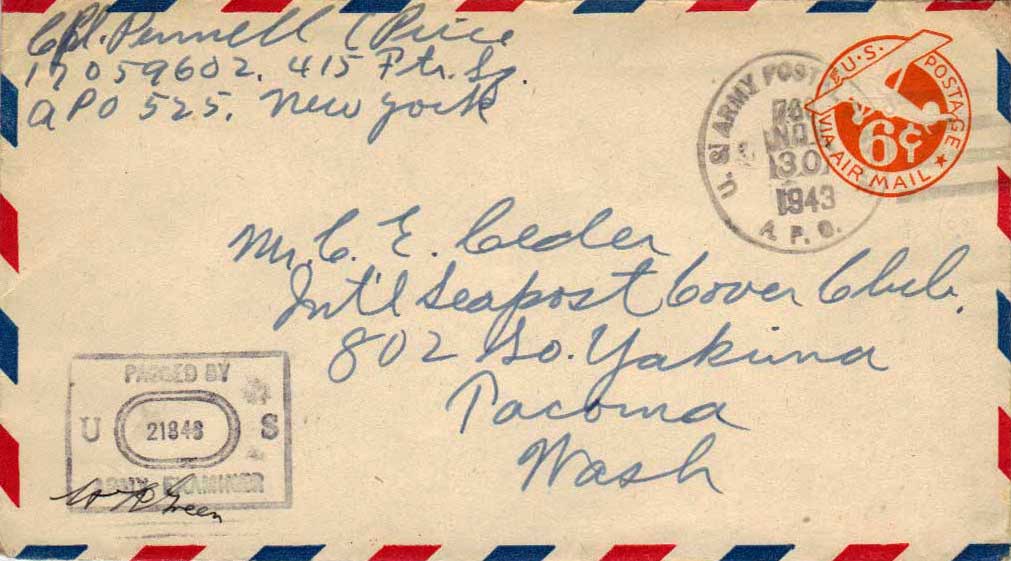 Cpl. Pernell C Price
17059602. 415 Ftr. Sq.
APO 525. New York
U.S. ARMY POST
30
1943
A. P. O.
U.S. POSTAGE
6¢
VIA AIR MAIL
Mr. C. E. Ceder
Int'l Seapost Cover Club.
802 So. Yakima
Tacoma
Wash
PASSED BY
U 21848 S
ARMY EXAMINER
Green